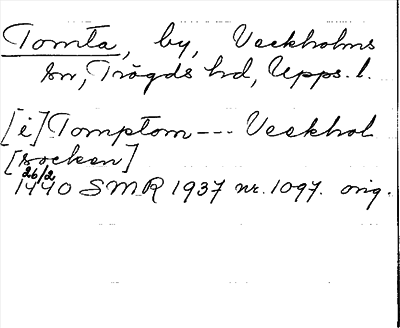 Tomta, by, Veckholms
sn, Trögds hd, Upps. l.
[i] Tomptom --- Veckhol
[socken]
26/2
1440 SMR 1937 nr. 1097. orig.